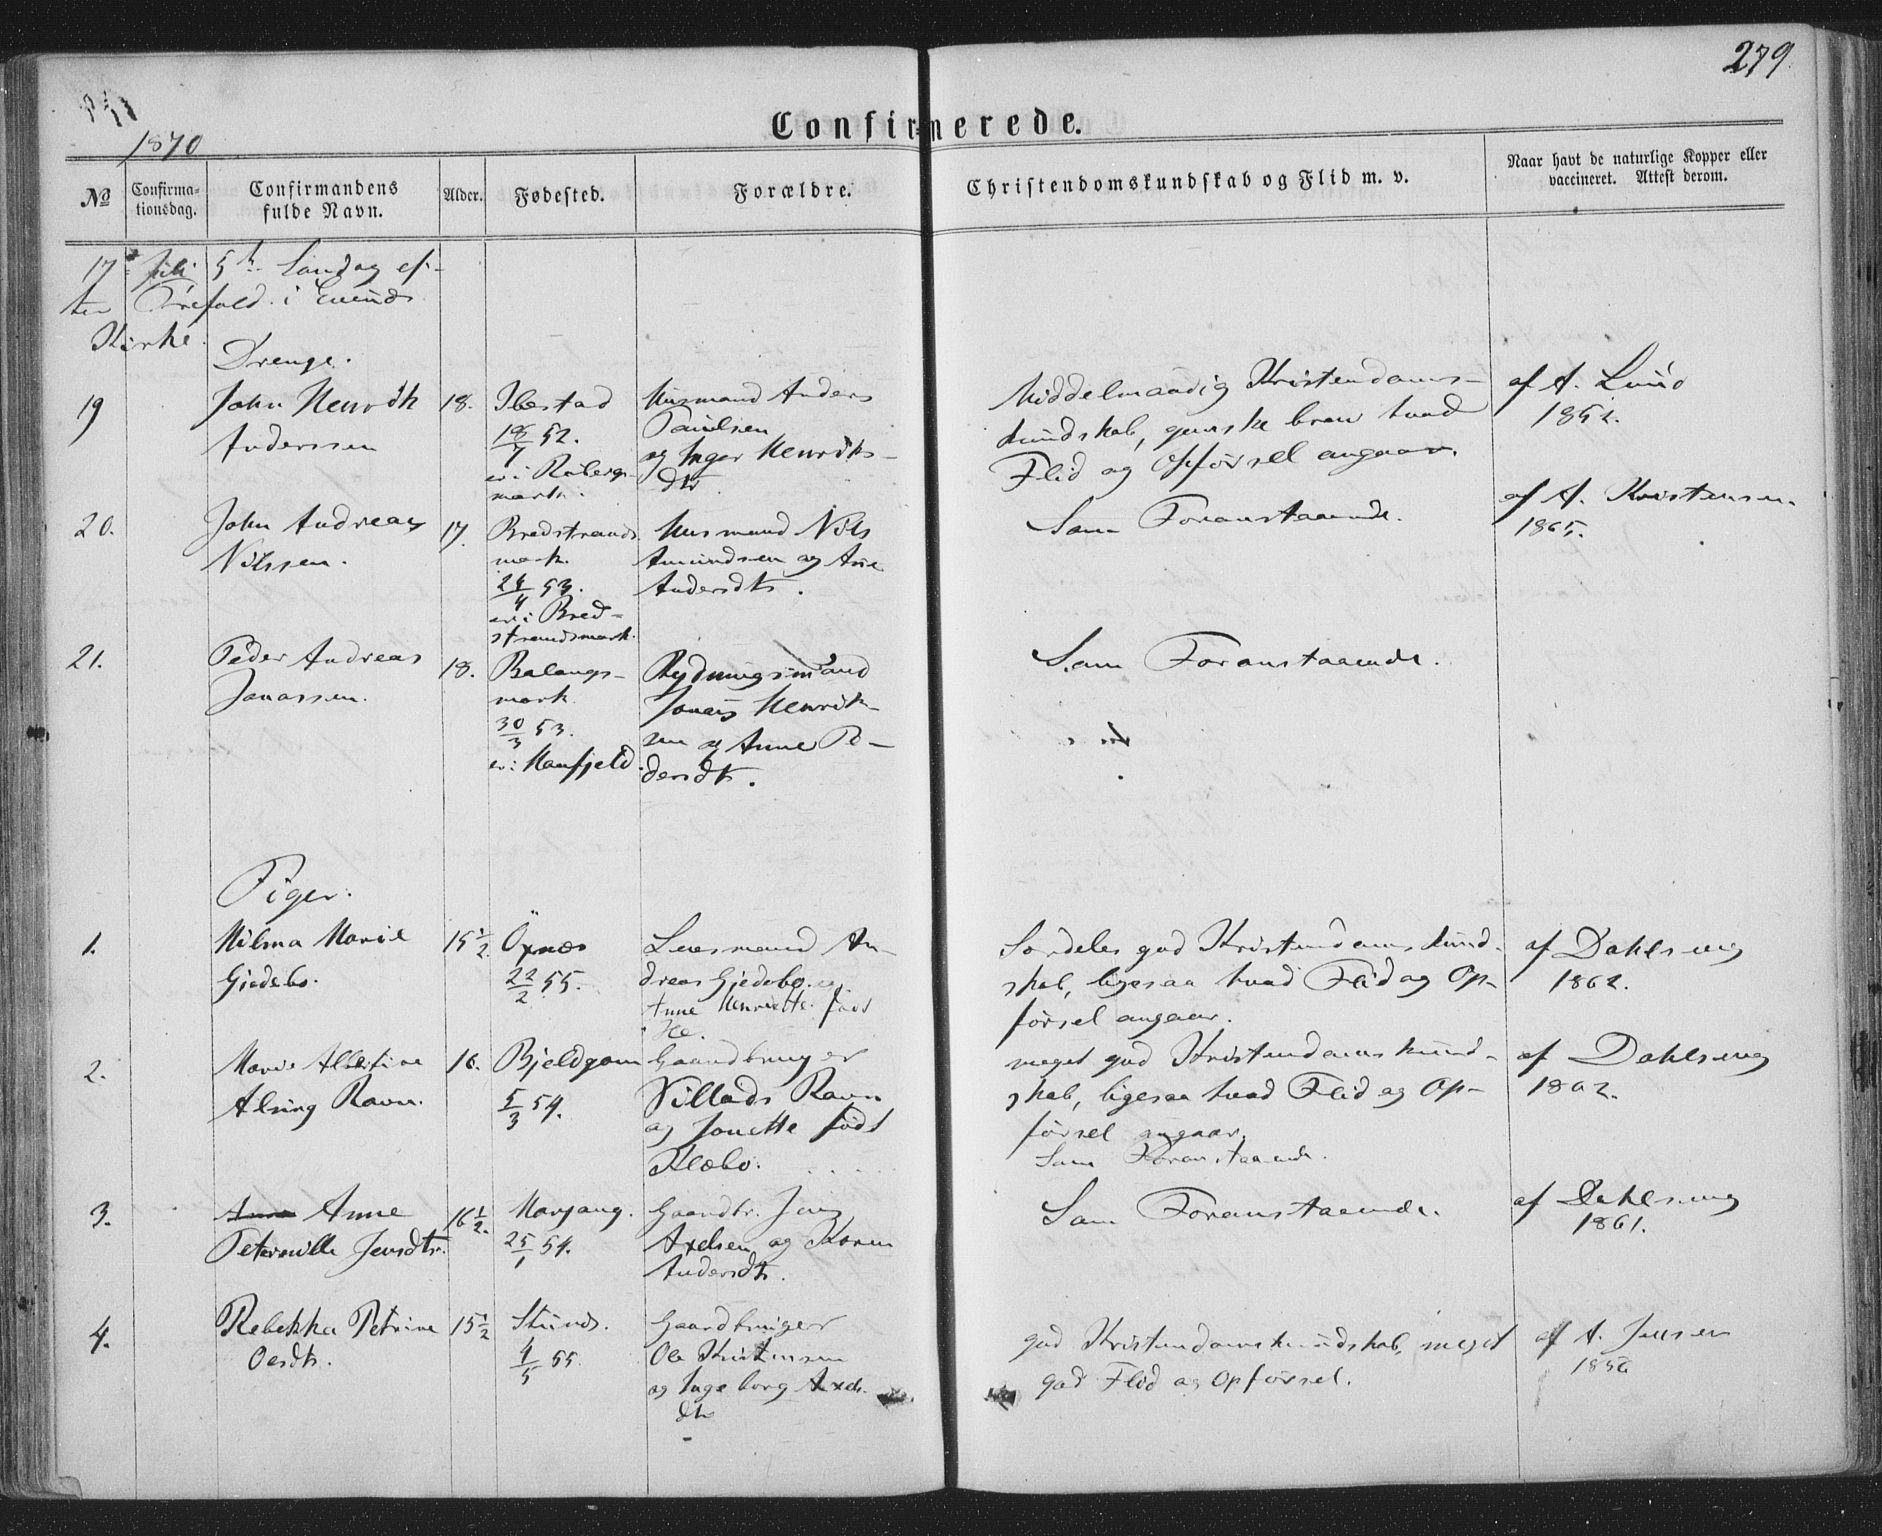 279.
1870
Confirmerede.
No
Confirma-
tionsdag.
Confirmandens
fulde Navn.
Alder.
Fødested.
Forældre.
Christendomskundskab og Flid m. v.
Naar havt de naturlige Kopper eller
vaccineret. Attest derom.
17 Juli 5te Søndag ef-
ter Trefold. i Evends
Kirke.
Drenge.
19
John Henrik
Anderssen
18.
Ibestad
18/7 52.
er i Raberg-
mark.
Husmand Anders
Paulsen
og Inger Henriks-
dtr
Middelmaadig Kristendoms-
kundskab, ganske brav hvad
Flid og Opførsel angaar.
af A. Lund
1852.
20.
John Andreas
Nilssen.
17.
Bredstrands
mark.
24/4 53.
er i Bred-
strandsmark.
Husmand Nils
Amundsen og Ane
Andersdtr.
Som Foranstaaende.
af A. Kristensen.
1865.
21.
Peder Andreas
Jonassen.
18.
Balangs-
mark.
30/3 53.
er i Haafjeld.
Rydningsmand
Jonas Henrik-
sen og Anne Pe-
dersdtr.
Som Foranstaaende.
Piger.
1.
Hilma Marie
Gjedebo.
15 1/2
Öxnæs
22/2 55.
Leesmand An-
dreas Gjedebo og
Anne Henriette født
Særdeles god Kristendomskund-
skab, ligesaa hvad Flid og Op-
førsel angaar.
af Dahlseng
1862.
2.
Marie Albertine
Alsing Ravn.
16.
Bjeldgam
5/3 54.
Gaardbruger
Villads Ravn
og Jonette født
Klæbo.
meget god Kristendomskund-
skab, ligesaa hvad Flid og Op-
førsel angaar.
Som Foranstaaende.
af Dahlseng
1862.
3.
Anne
Peternille Jensdtr.
16 1/2.
Morjang.
25/1 54.
Gaardbr. Jens
Axelsen og Karen
Andersdtr.
Som Foranstaaende.
af Dahlseng
1861.
4.
Rebekka Petrine
Olesdtr.
15 1/2
4/5 55.
Gaardbruger
Ole Kristensen
og Ingeborg Axels-
dtr
god Kristendomskundskab, meget
god Flid og Opførsel.
af A. Jensen
1856